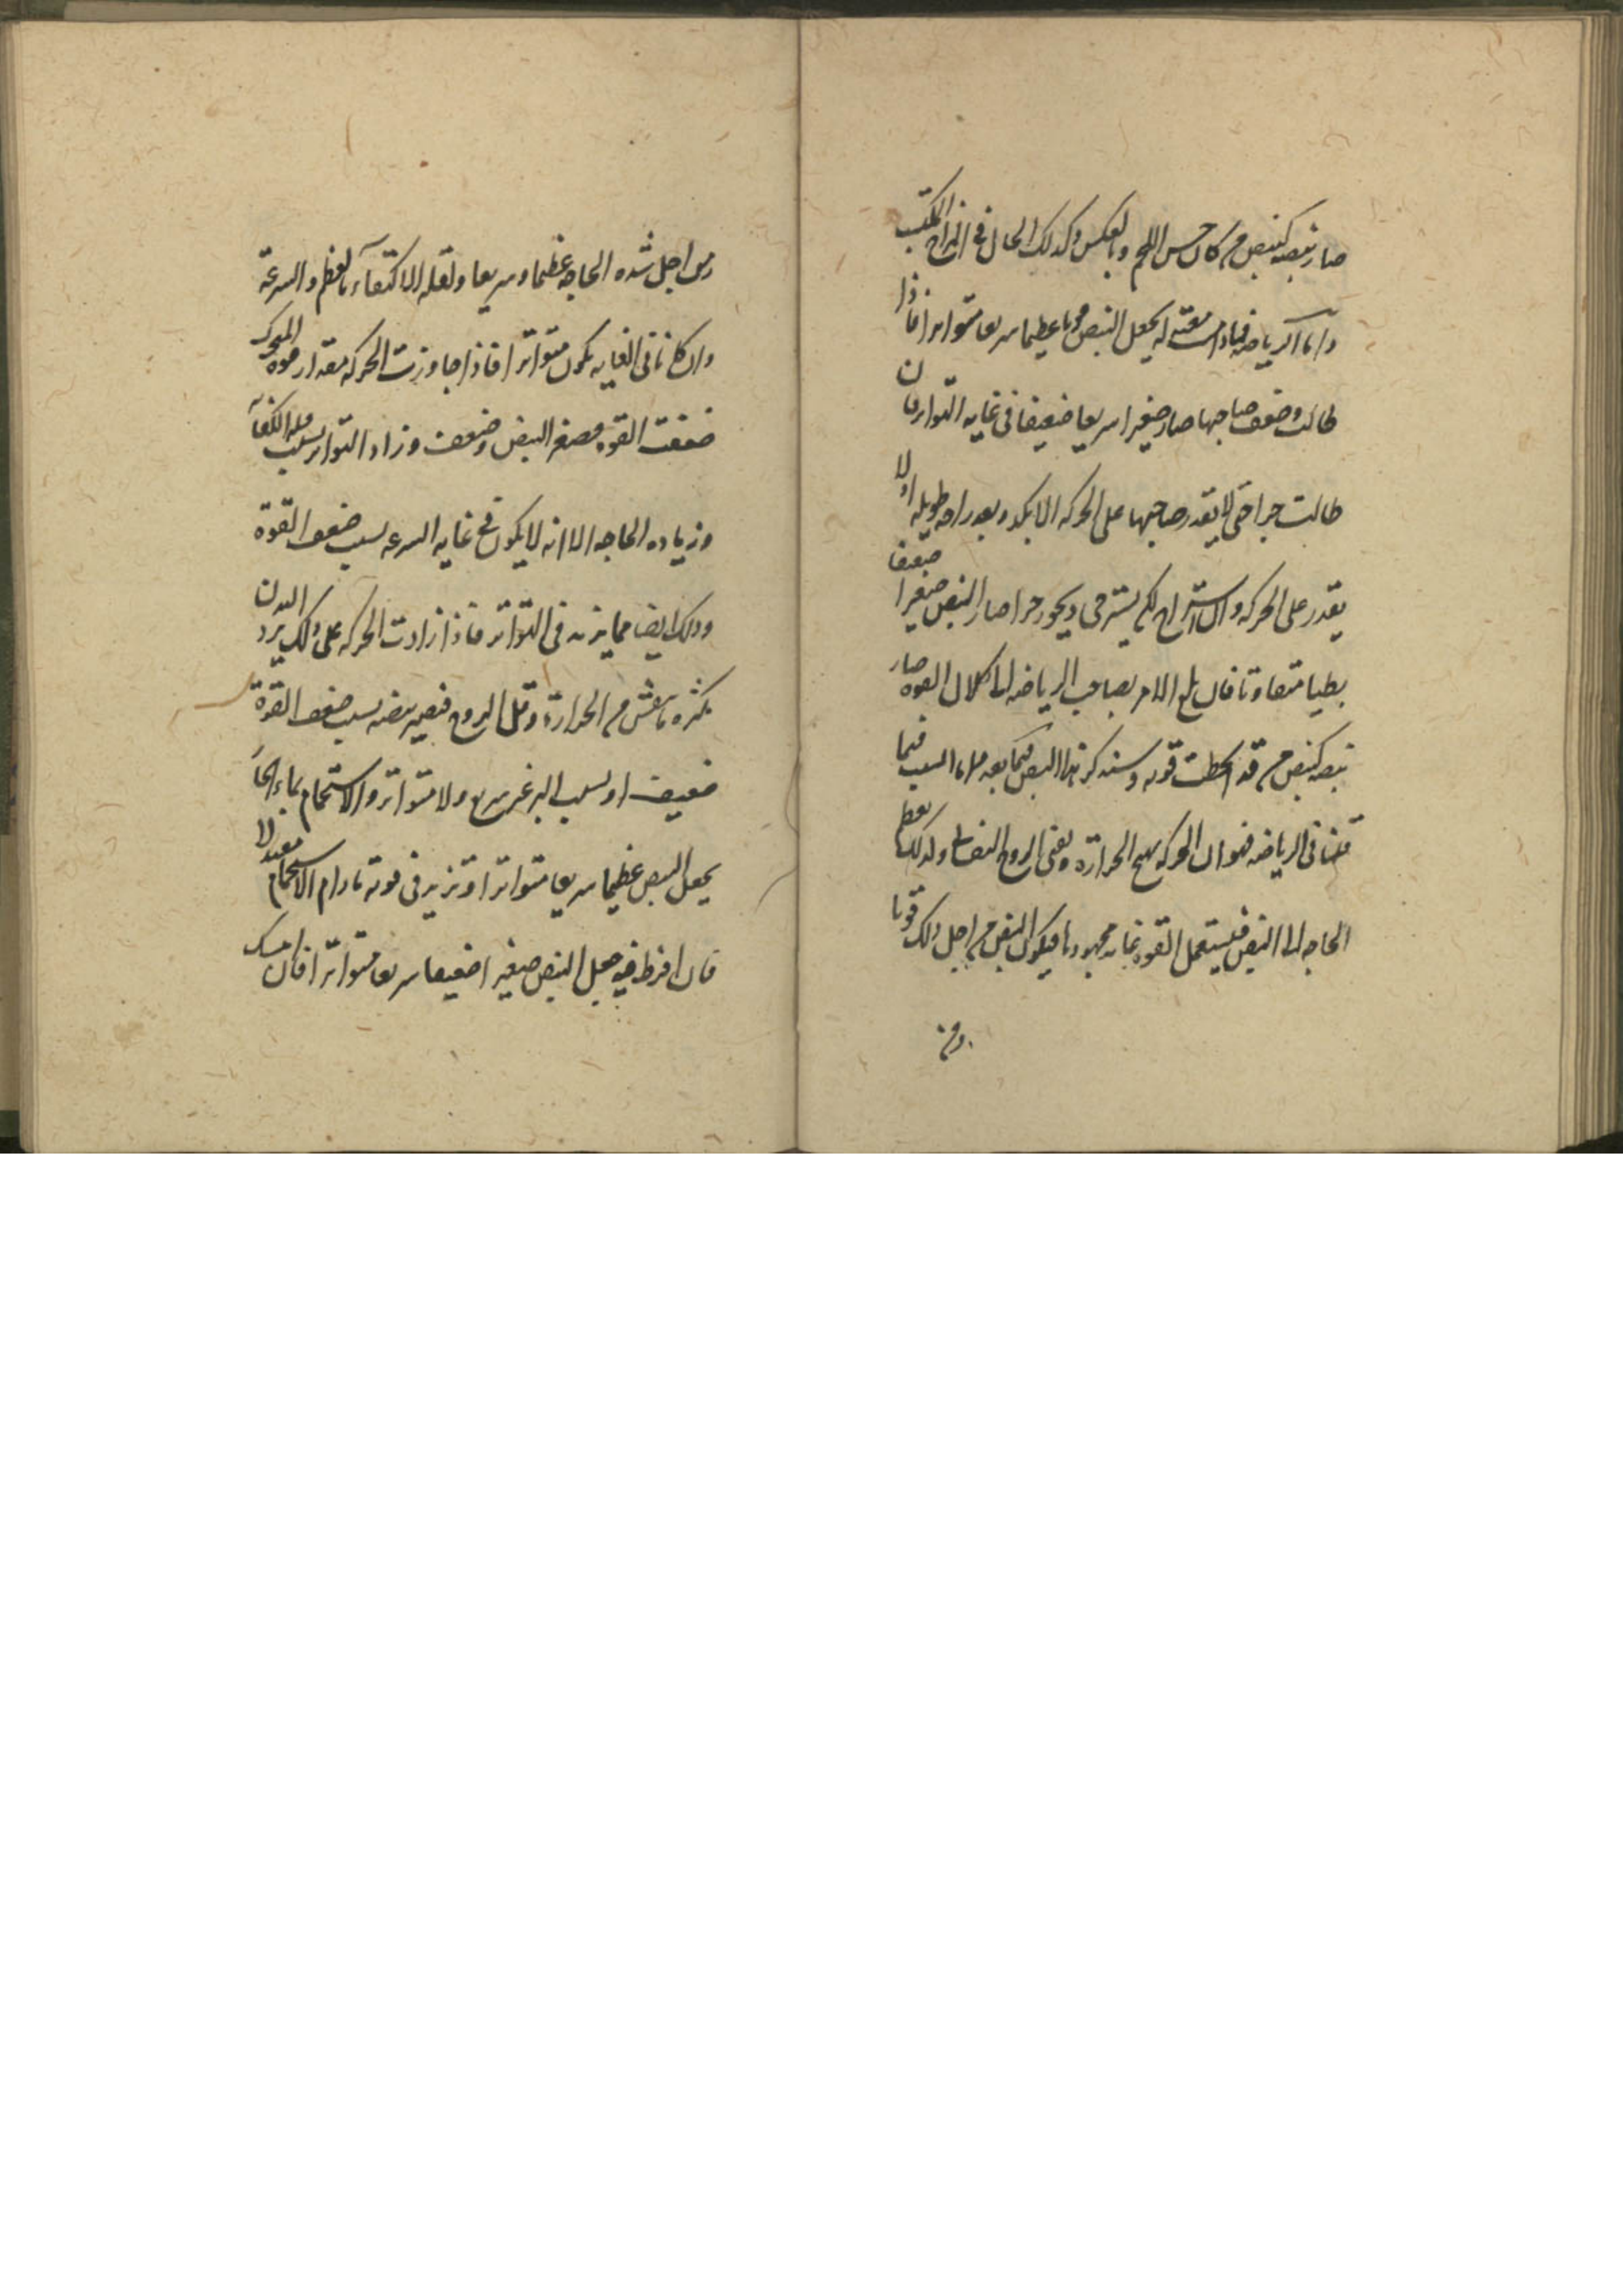 صار نبضه كنبض من كان حسن اللحم وبالعكس وكذلك الحال في المزاج المكتسب
واما الرياضة فما دامت معتدلة يجعل النبض قويا عظيما سريعا متواترا فاذا
طالت وضعف صاحبها صار صغيرا سريعا ضعيفا في غايه التواتر فان
طالت جدا حتى لا يقدر صاحبها على الحركه الا بكد وبعد راحه طويله او لا
يقدر على الحركه و لكن يسترخي ويخور جدا صار النبض صغيرا ضعيفا
بطيا متفاوتا فان بلغ الامر بصاحب الرياضه الى كلال القوه صار
نبضه كنبض من قد انحطت قوته وسنذكر هذا النبض فيما بعد السبب فيما
قلنا في الرياضه فهو ان الحركه يهيج الحرارة ويقوي الروح النفساني ولذلك يعظم
الحاجه الى النبض فيستعمل القوه غايه مجهودها فيكون النبض من اجل ذلك قويا
ومن
ومن اجل شده الحاجه عظيما وسريعا ولقله الاكتفآء بالعظم والسرعة
وان كانا في الغايه يكون متواترا فاذا جاوزت الحركه مقدار قوه المتحرك
ضعفت القوه فصغر النبض وضعف وزاد التواتر بسبب قله الاكتفآء
وزياده الحاجه الا انه لا يكون في غايه السرعه بسبب ضعف القوة
وذلك ايضا مما يزيد في التواتر فاذا زادت الحركه على ذلك يرد البدن
بكثره ما يفش من الحرارة وقل الروح فيصير نبضه بسبب ضعف القوة
ضعيف او بسبب البرد غير سريع ولا متواتر والاستحمام بماء الحآر
يجعل النبض عظيما سريعا متواترا وتزيد في قوته ما دام الاستحمام معتدلا
فان افرط فيه جعل النبض صغيرا ضعيفا سريعا متواترا فان امسك